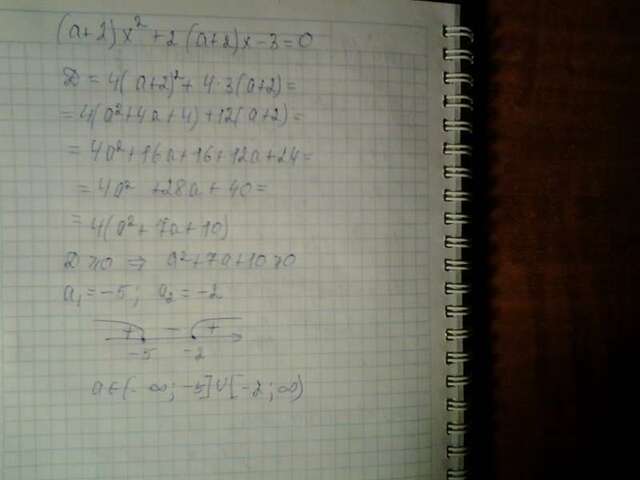 (a+2)x² + 2(a+2)x - 3 = 0
D = 4(a+2)² + 4·3(a+2) =
= 4(a²+4a+4)+12(a+2) =
= 4a²+16a+16+12a+24 =
= 4a² +28a + 40 =
= 4(a²+7a+10)
D ≥ 0 ⇒ a²+7a+10 ≥ 0
a₁ = -5; a₂ = -2
+ - +
-5 -2
a ∈ (-∞; -5] ∪ [-2; ∞)